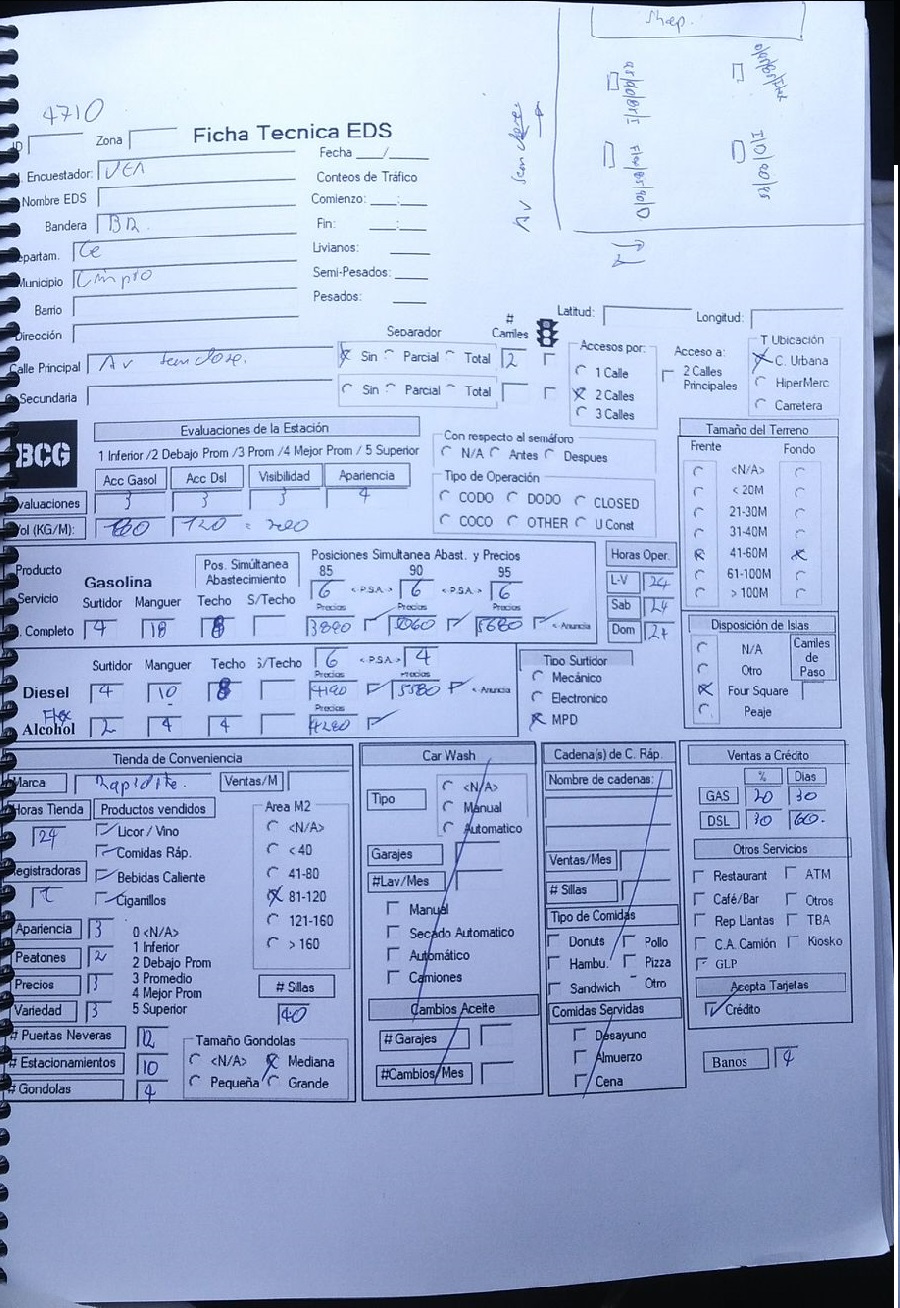 Shop.
4710
ID Zona Ficha Tecnica EDS
Fecha __/__
. Encuestador: VEA
Conteos de Tráfico
Nombre EDS
Comienzo: __:__
Bandera BR.
Fin: __:__
epartam. Ce
Livianos: ____
Municipio
Semi-Pesados: ____
Barrio
Pesados: ____
Dirección
Latitud: Longitud:
Calle Principal Av
Separador # Carriles
Sin Parcial Total 2
Secundaria
Sin Parcial Total
Accesos por:
1 Calle
2 Calles
3 Calles
Acceso a:
2 Calles
Principales
T Ubicación
C. Urbana
HiperMerc
Carretera
BCG
Evaluaciones de la Estación
1 Inferior /2 Debajo Prom /3 Prom /4 Mejor Prom / 5 Superior
Acc Gasol Acc Dsl Visibilidad Apariencia
valuaciones 3 3 3 4
Vol (KG/M): 120
Con respecto al semáforo
N/A Antes Despues
Tipo de Operación
CODO DODO CLOSED
COCO OTHER U Const
Tamaño del Terreno
Frente Fondo
<N/A>
< 20M
21-30M
31-40M
41-60M
61-100M
> 100M
Producto
Servicio
. Completo
Gasolina
Pos. Simúltanea
Abastecimiento
Posiciones Simultanea Abast. y Precios
85 90 95
6 <P.S.A.> 6 <P.S.A.> 6
Surtidor Manguer Techo S/Techo Precios Precios Precios
4 18 8 5680 <-Anuncia
Horas Oper.
L-V 24
Sab 24
Dom 24
Surtidor Manguer Techo S/Techo 6 <P.S.A> 4
Precios Precios
Diesel 4 10 8 4190 5580 <-Anuncia
Flex Precios
Alcohol 2 4 4 4280
Tipo Surtidor
Mecánico
Electronico
MPD
Disposición de Islas
N/A
Otro
Four Square
Peaje
Carriles
de
Paso
Tienda de Conveniencia
Marca Ventas/M
Horas Tienda Productos vendidos
24
Licor / Vino
Comidas Ráp.
Registradoras
Bebidas Caliente
Cigarrillos
Area M2
<N/A>
<40
41-80
81-120
121-160
> 160
Apariencia 3
Peatones 2
Precios 3
Variedad 3
0 <N/A>
1 Inferior
2 Debajo Prom
3 Promedio
4 Mejor Prom
5 Superior
# Sillas
40
# Puertas Neveras 12
# Estacionamientos 10
# Gondolas 4
Tamaño Gondolas
<N/A> Mediana
Pequeña Grande
Car Wash
Tipo
<N/A>
Manual
Automatico
Garajes
#Lav/Mes
Manual
Secado Automatico
Automático
Camiones
Cambios Aceite
# Garajes
#Cambios/Mes
Cadena(s) de C. Ráp.
Nombre de cadenas:
Ventas/Mes
# Sillas
Tipo de Comidas
Donuts Pollo
Hambu. Pizza
Sandwich Otro
Comidas Servidas
Desayuno
Almuerzo
Cena
Ventas a Crédito
% Dias
GAS 20 30
DSL 30 60.
Otros Servicios
Restaurant ATM
Café/Bar Otros
Rep Llantas TBA
C.A. Camión Kiosko
GLP
Acepta Tarjetas
Crédito
Banos 4